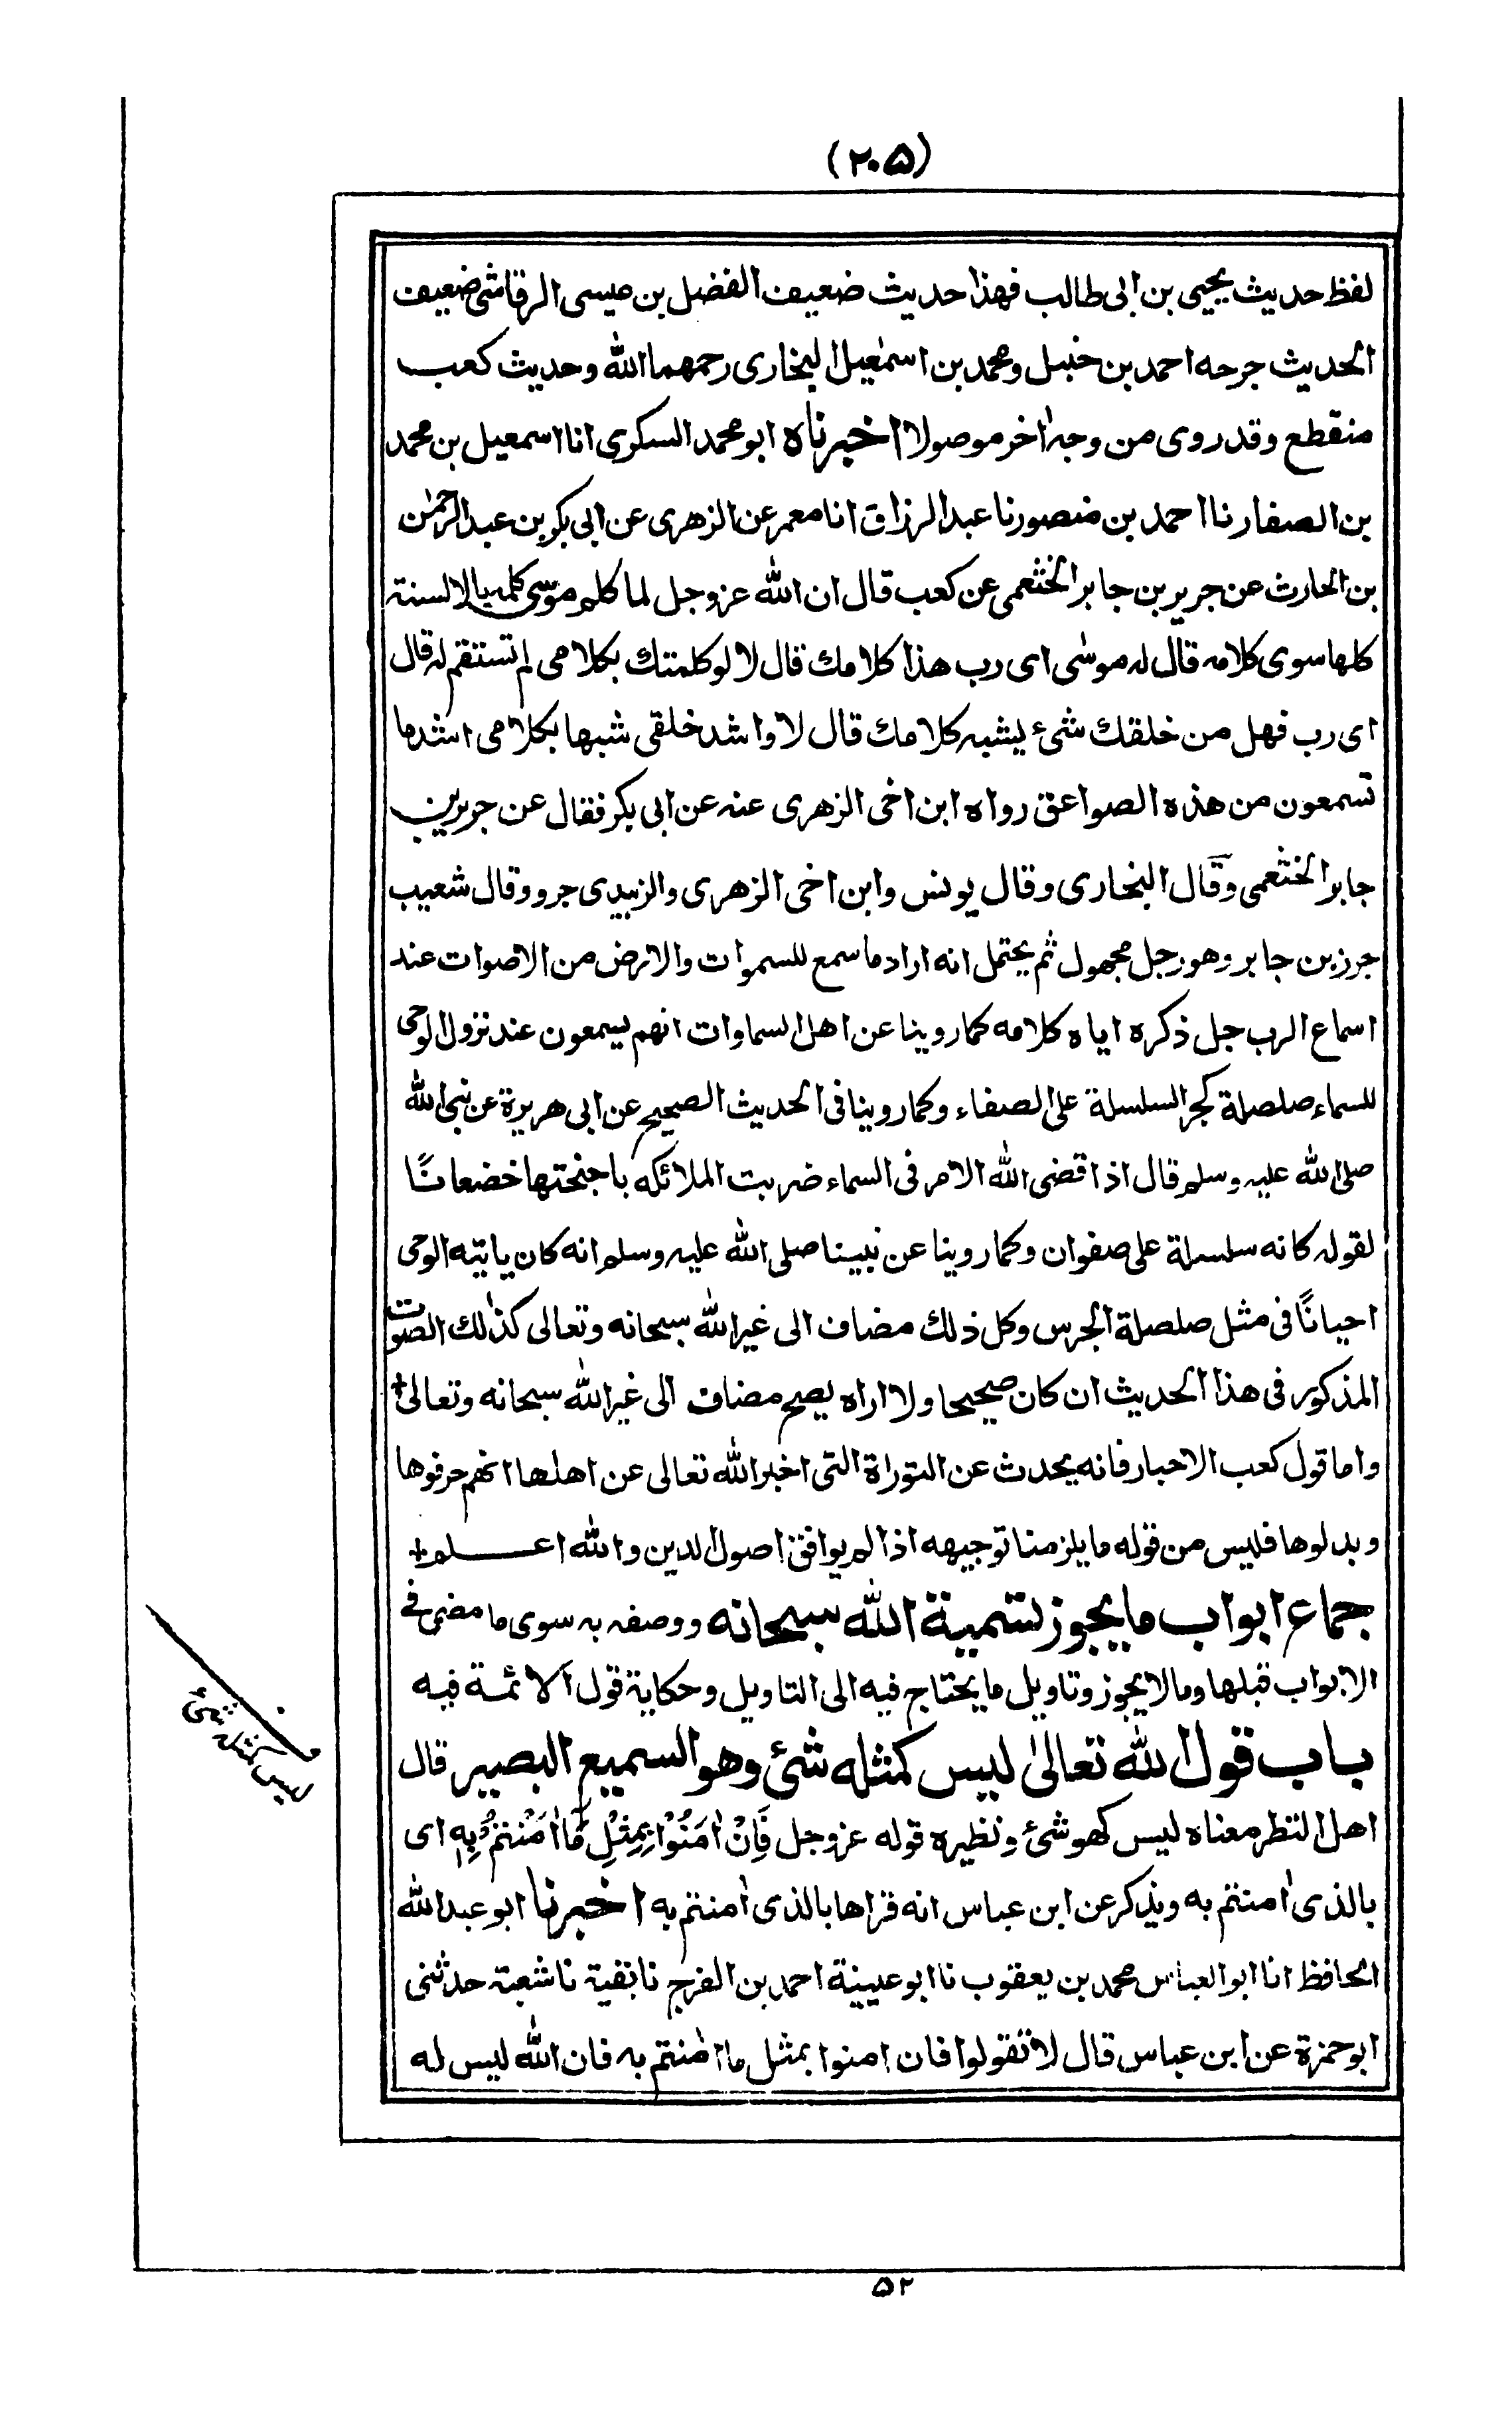 (٢٠۵)
لفظ حديث يحيى بن ابى طالب فهذا حديث ضعيف الفضل بن عيسى الرقاشى ضعيف
الحديث جرحه احمد بن حنبل ومحمد بن اسمٰعيل البخارى رحمهما الله وحديث كعب
منقطع وقد روى من وجه اٰخر موصولا اخبرناه ابو محمد السكرى انا اسمعيل بن محمد
بن الصفار نا احمد بن منصور نا عبد الرزاق انا معمر عن الزهرى عن ابى بكر بن عبد الرحمٰن
بن الحارث عن جرير بن جابر الخثعمى عن كعب قال ان الله عزوجل لما كلم موسى كلمه بالالسنة
كلها سوى كلامه قال له موسٰى اى رب هذا كلامك قال لا لو كلمتك بكلامى لم تستقم له قال
اى رب فهل من خلقك شئ يشبه كلامك قال لا واشد خلقى شبها بكلامى اشد ما
تسمعون من هذه الصواعق رواه ابن اخى الزهرى عنه عن ابى بكر فقال عن جرير بن
جابر الخثعمى وقال البخارى وقال يونس وابن اخى الزهرى والزبيدى جرو وقال شعيب
جرز بن جابر وهو رجل مجهول ثم يحتمل انه اراد ما سمع للسموات والارض من الاصوات عند
اسماع الرب جل ذكره اياه كلامه كما روينا عن اهل السماوات انهم يسمعون عند نزول الوحى
للسماء صلصلة كجر السلسلة على الصفاء وكما روينا فى الحديث الصحيح عن ابى هريرة عن نبى الله
صلى الله عليه وسلم قال اذا قضى الله الامر فى السماء ضربت الملائكه باجنحتها خضعانًا
لقوله كانه سلسلة على صفوان وكما روينا عن نبينا صلى الله عليه وسلم انه كان ياتيه الوحى
احيانًا فى مثل صلصلة الجرس وكل ذلك مضاف الى غير الله سبحانه وتعالى كذٰلك الصوت
المذكور فى هذا الحديث ان كان صحيحا ولا اراه يصح مضاف الى غير الله سبحانه وتعالى+
واما قول كعب الاحبار فانه يحدث عن التوراة التى اخبر الله تعالى عن اهلها انهم حرفوها
وبدلوها فليس من قوله ما يلزمنا توجيهه اذا لم يوافق اصول الدين والله اعلم+
جماع ابواب ما يجوز تسمية الله سبحانه ووصفه به سوى ما مضى فى
الابواب قبلها وما لا يجوز وتاويل ما يحتاج فيه الى التاويل وحكاية قول الائمة فيه
باب قول الله تعالىٰ ليس كمثله شئ وهو السميع البصير قال
اهل النظر معناه ليس كهو شئ ونظيره قوله عزوجل فَاِنْ اٰمَنُوْا بِمِثْلِ مَا اٰمَنْتُمْ بِهٖ اى
بالذى اٰمنتم به ويذكر عن ابن عباس انه قراها بالذى اٰمنتم به اخبرنا ابو عبد الله
الحافظ انا ابو العباس محمد بن يعقوب نا ابو عيينة احمد بن الفرج نا بقية نا شعبة حدثنى
ابو حمزة عن ابن عباس قال لا تقولوا فان امنوا بمثل ما اٰمنتم به فان الله ليس له
ليس كمثله شئ
۵٢